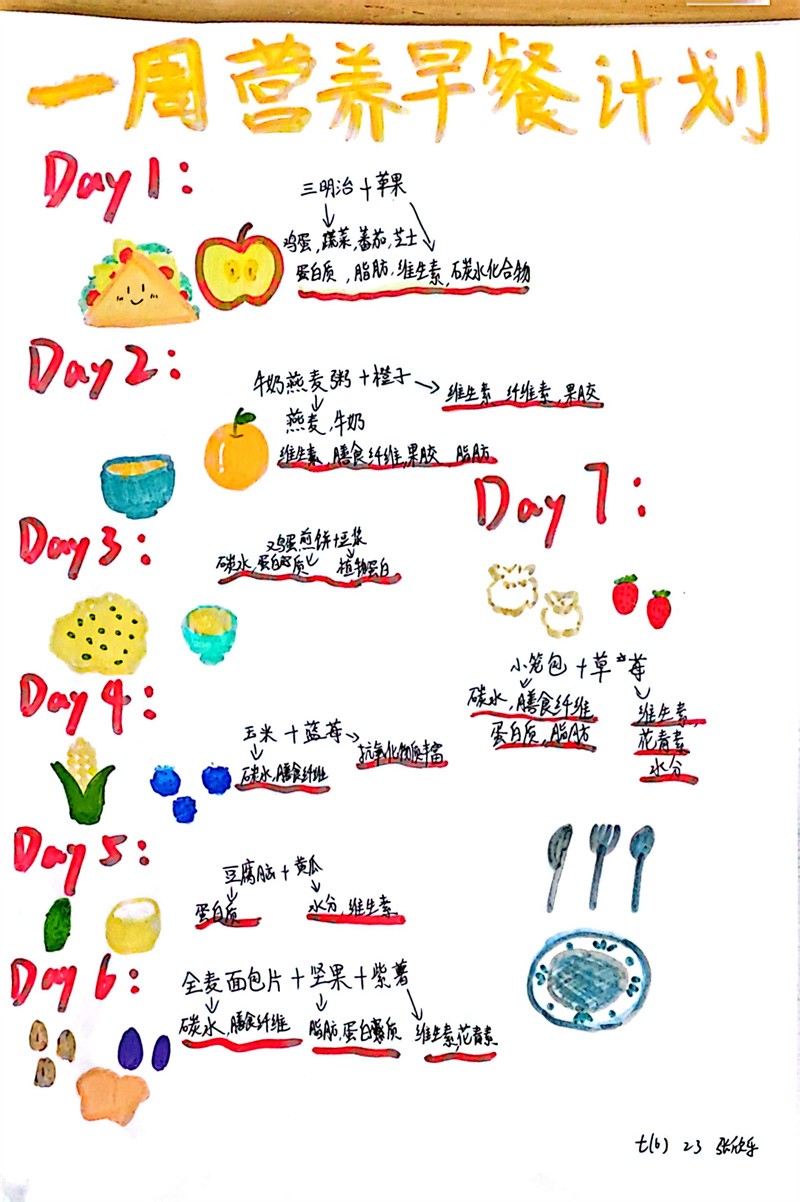 一周营养早餐计划
Day 1:
三明治+苹果
鸡蛋,蔬菜,番茄,芝士
蛋白质,脂肪,维生素,碳水化合物
Day 2:
牛奶燕麦粥+橙子→维生素 纤维素,果胶
燕麦,牛奶
维生素,膳食纤维,果胶 脂肪
Day 3:
鸡蛋煎饼+豆浆
碳水,蛋白质 植物蛋白
Day 4:
玉米+蓝莓
碳水,膳食纤维 抗氧化物质丰富
Day 5:
豆腐脑+黄瓜
蛋白质 水分,维生素
Day 6:
全麦面包片+坚果+紫薯
碳水,膳食纤维 脂肪,蛋白质 维生素,花青素
Day 7:
小笼包+草莓
碳水,膳食纤维 维生素,
蛋白质,脂肪 花青素
水分
七(6) 23 张欣乐